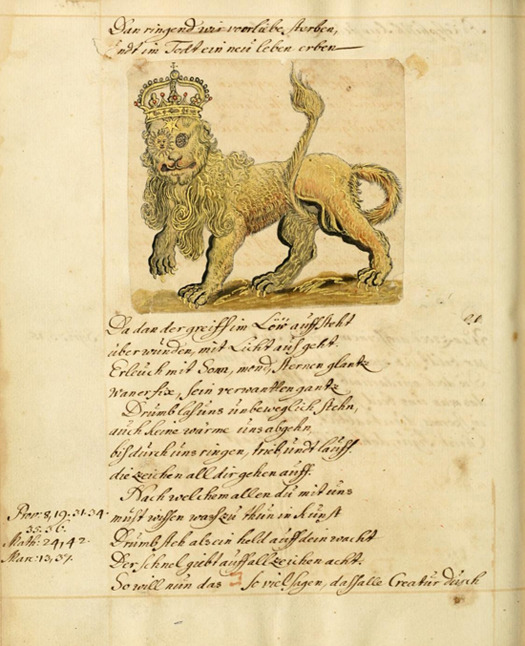 Dan ringend wir vor liebe sterben,
Undt im Todt ein neü leben erben
Da dan der greiff im Löw auffsteht
überwunden, mit Licht ausgeht
Erleucht mit Sonn, mond, sternen glantz
Wan er fix, sein verwantlen gantz
Drumb las uns unbeweglich stehn,
auch keine wärme uns abgehn,
bis durch uns ringen, trieb undt lauff
die zeichen all dir gehen auff.
Nach welchem allen du mit uns
must wissen was zu thun in Kunst
Drumb steh als ein held auff dein wacht
Der schnel giebt auff all zeichen acht.
So will nun das so viel sagen, das alle Creatur durch
21
Prov: 8, 19. 31. 34.
35. 36.
Math: 24, 42.
Marc: 13, 37.